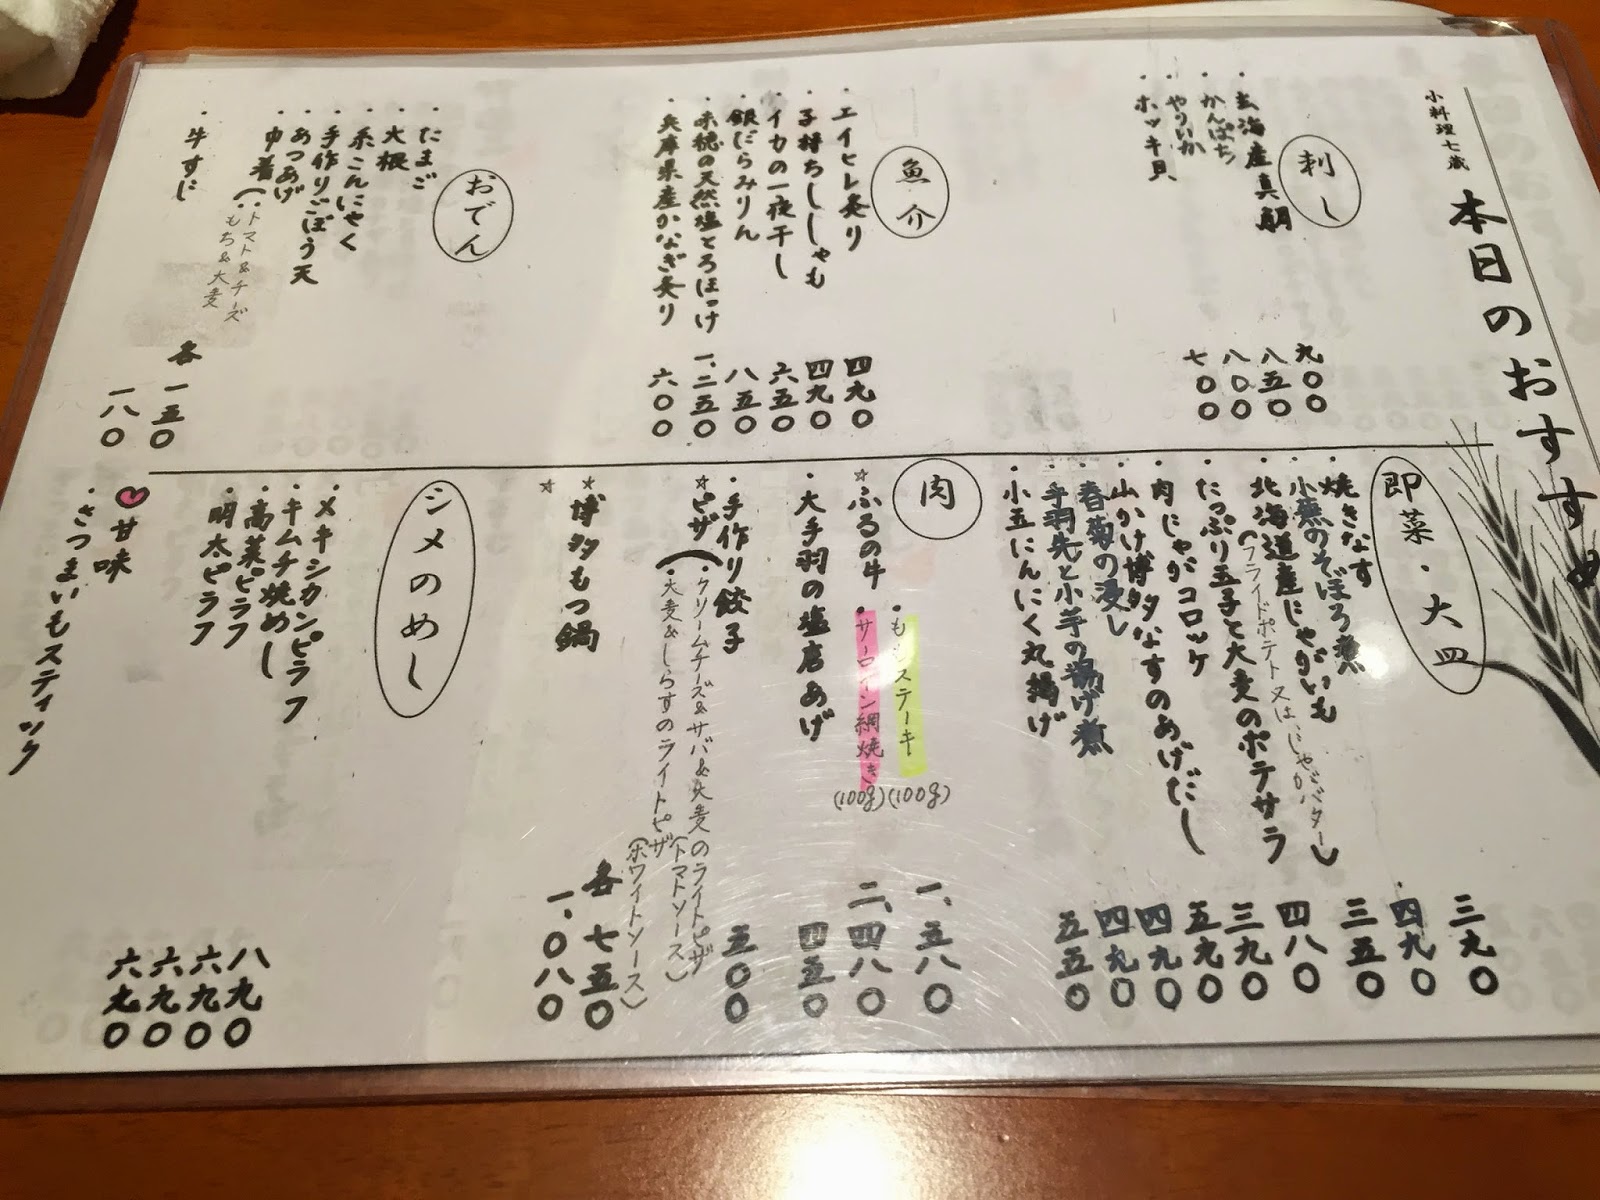 小料理七蔵
本日のおすすめ
刺し
・玄海産真鯛 九〇〇
・かんぱち 八五〇
・やりいか 八〇〇
・ホッキ貝 七〇〇
魚介
・エイヒレ炙り 四九〇
・子持ちししゃも 四九〇
・イカの一夜干し 六五〇
・銀だらみりん 八五〇
・赤穂の天然塩とろほっけ 一、二五〇
・兵庫県産かなぎ炙り 六〇〇
おでん
・たまご
・大根
・糸こんにゃく
・手作りごぼう天
・あつあげ
・巾着(・トマト&チーズ
・もち&大麦
各一五〇
・牛すじ 一八〇
即菜・大皿
・焼きなす 三九〇
・小蕪のそぼろ煮 四九〇
・北海道産じゃがいも 三五〇
(フライドポテト又は、じゃがバター)
・たっぷり玉子と大麦のポテサラ 四八〇
・肉じゃがコロッケ 三九〇
・山かけ博多なすのあげだし 五九〇
・春菊の浸し 四九〇
・手羽先と小芋の揚げ煮 四九〇
・小玉にんにく丸揚げ 五五〇
肉
☆ふるの牛
・ももステーキ(100g) 一、五八〇
・サーロイン網焼き(100g) 二、四八〇
・大手羽の塩唐あげ 四五〇
・手作り餃子 五〇〇
☆ピザ(・クリームチーズ&サバ&大麦のライトピザ(トマトソース)
・大麦&しらすのライトピザ(ホワイトソース)
各七五〇
☆博多もつ鍋 一、〇八〇
☆
シメのめし
・メキシカンピラフ 八九〇
・キムチ焼めし 六九〇
・高菜ピラフ 六九〇
・明太ピラフ 六九〇
甘味
・さつまいもスティック